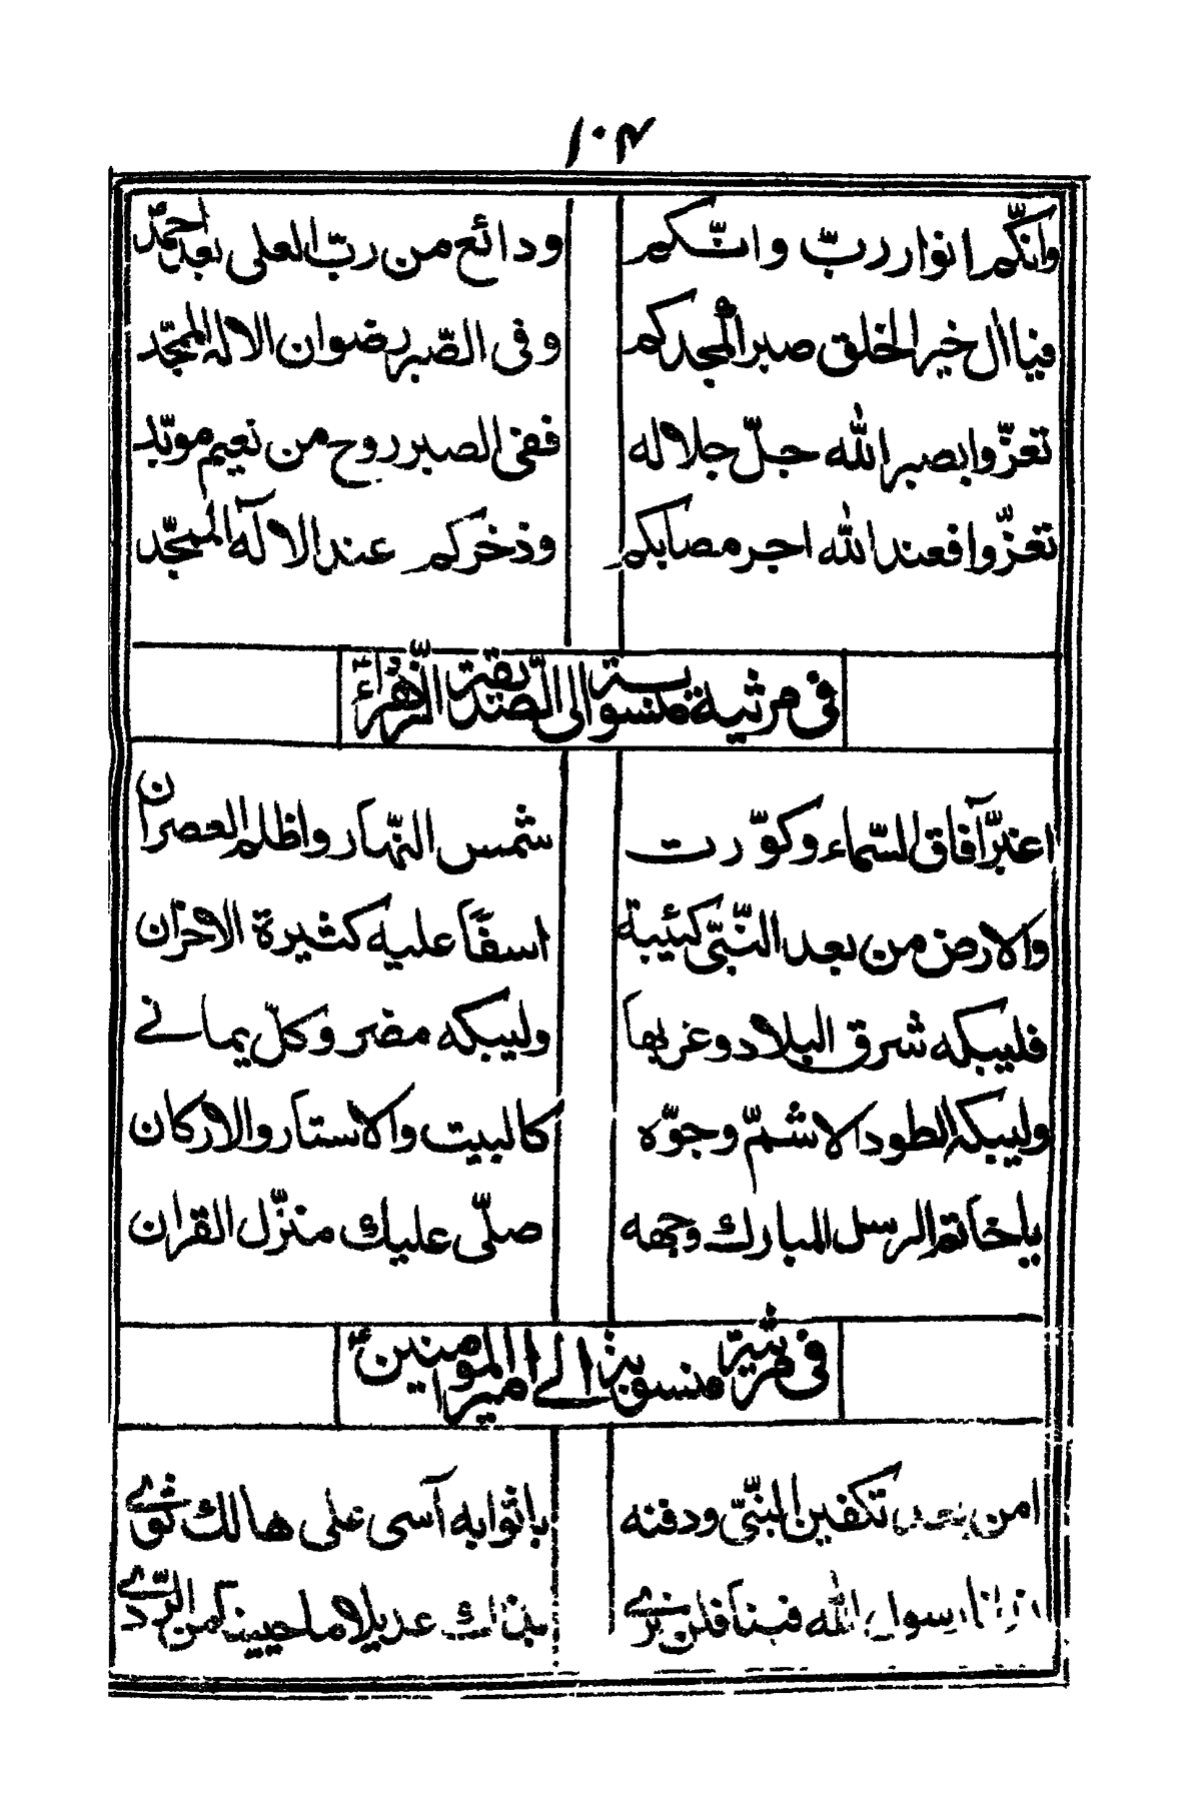 ۱۰۴
وانكّم انوار ربّ وانّكم ودائع من ربّ العلى بعد احمدّ
فيا ال خير الخلق صبر المجدكم وفى الصّبر رضوان الاله الممجّد
تعزّوا بصبر الله جلّ جلاله ففى الصبر روح من نعيم موبّد
تعزّوا فعند الله اجر مصابكم وذخركم عند الاله الممجّد
فى مرثية منسوبة الى الصّديقة الزّهراءؑ
اغبرّ آفاق السّماء وكوّرت شمس النّهار واظلم العصران
والارض من بعد النّبىّ كئيبة اسفًا عليه كثيرة الاحزان
فليبكه شرق البلاد وغربها وليبكه مضر وكلّ يمانے
وليبكه الطود الاشمّ وجوّه كالبيت والاستار والاركان
يا خاتم الرسل المبارك وجهه صلّى عليك منزّل القران
فى مرثيّة منسوبة الے امير المومنينؑ
امن بعد تكفين النّبىّ ودفنه باثوابه آسى على هالك ثوے
رسول الله فينا فلن نرے بذاك عديلا ما حيينا من الرّدے